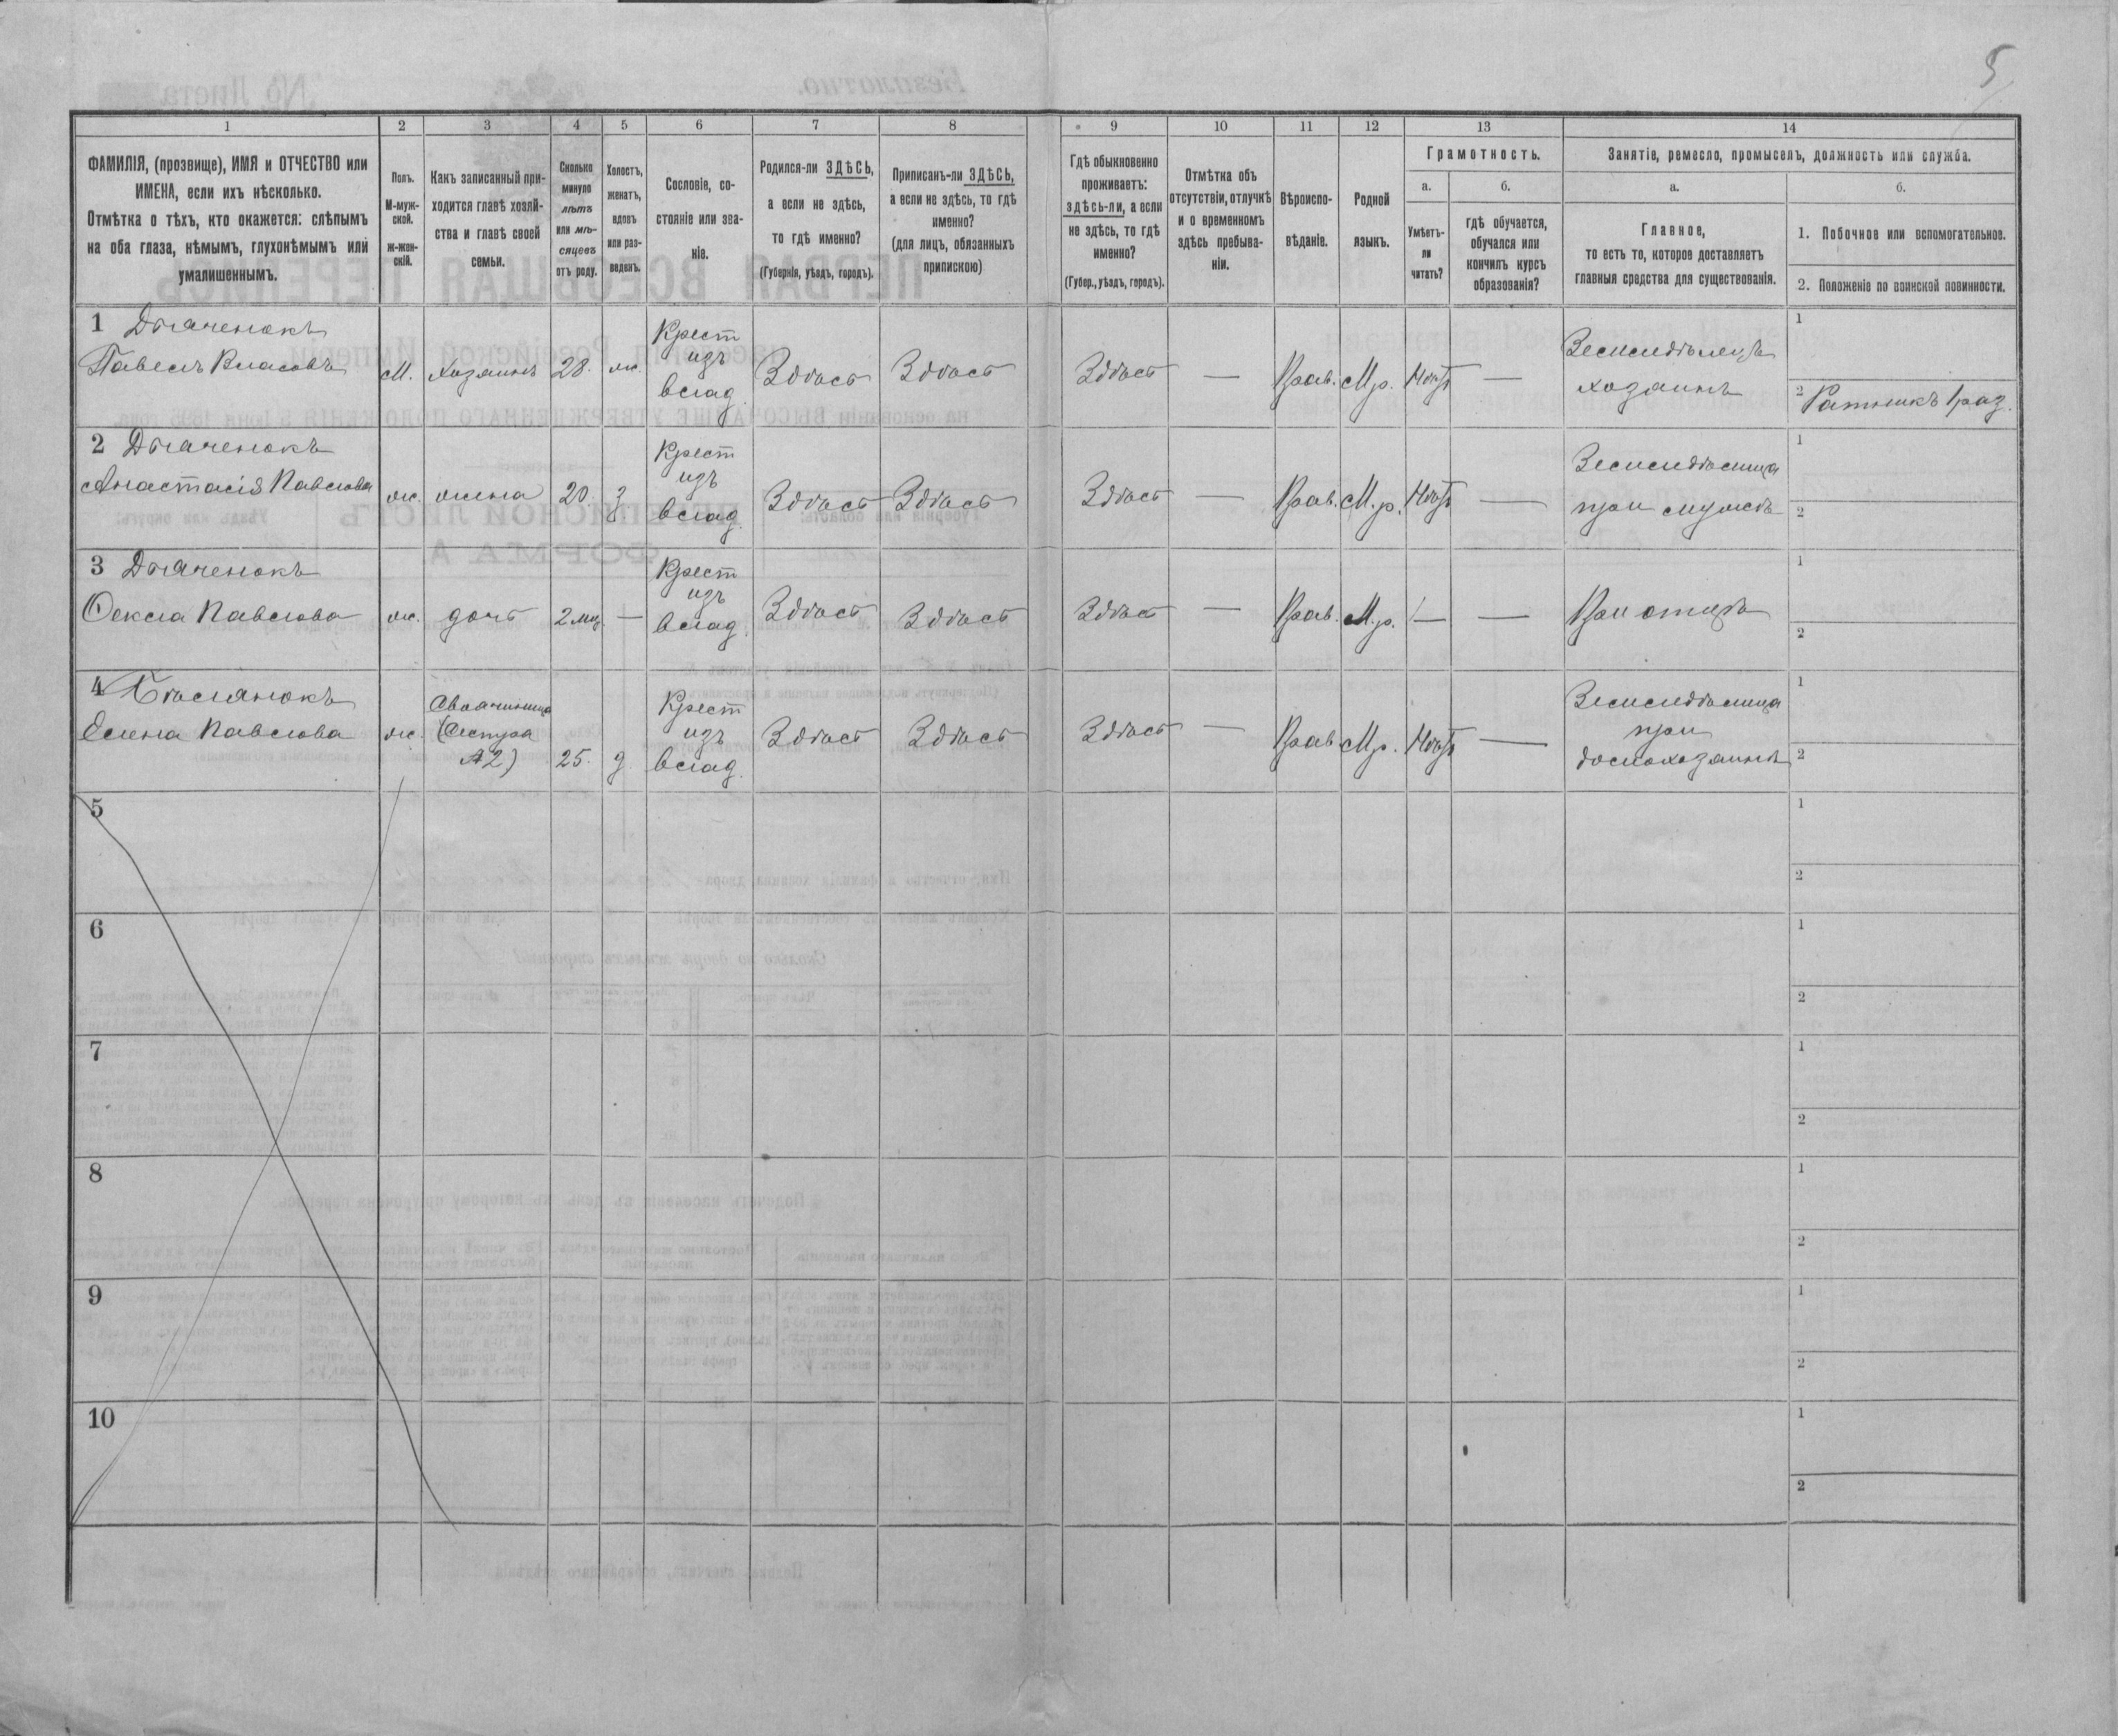 5
1
2
3
4
5
6
7
8
9
10
11
12
13
14
ФАМИЛІЯ, (прозвище), ИМЯ и ОТЧЕСТВО или
ИМЕНА, если ихъ нѣсколько.
Отмѣтка о тѣхъ, кто окажется: слѣпымъ
на оба глаза, нѣмымъ, глухонѣмымъ или
умалишеннымъ.
Полъ.
М-муж-
ской.
ж-жен-
скій.
Какъ записанный при-
ходится главѣ хозяй-
ства и главѣ своей
семьи.
Сколько
минуло
лѣтъ
или мѣ-
сяцевъ
отъ роду.
Холостъ,
женатъ,
вдовъ
или раз-
веденъ.
Сословіе, со-
стояніе или зва-
ніе.
Родился-ли ЗДѢСЬ,
а если не здѣсь,
то гдѣ именно?
(Губернія, уѣздъ, городъ).
Приписанъ-ли ЗДѢСЬ,
а если не здѣсь, то гдѣ
именно?
(для лицъ, обязанныхъ
припискою)
Гдѣ обыкновенно
проживаетъ:
здѣсь-ли, а если
не здѣсь, то гдѣ
именно?
(Губер., уѣздъ, городъ).
Отмѣтка объ
отсутствіи, отлучкѣ
и о временномъ
здѣсь пребыва-
ніи.
Вѣроиспо-
вѣданіе.
Родной
языкъ.
Грамотность.
а.
б.
Умѣетъ-
ли
читать?
гдѣ обучается,
обучался или
кончилъ курсъ
образованія?
Занятіе, ремесло, промыселъ, должность или служба.
а.
б.
Главное,
то есть то, которое доставляетъ
главныя средства для существованія.
1. Побочное или вспомогательное.
2. Положеніе по воинской повинности.
1 Дьяченокъ
Павелъ Власовъ
М.
хозяинъ
28.
ж.
Крест
изъ
влад.
Здѣсь
Здѣсь
Здѣсь
—
Прав.
М.р.
Нѣтъ
—
Земледѣлецъ
хозяинъ
1
2 Ратникъ 1 раз.
2 Дьяченокъ
Анастасія Павлова
ж.
жена
20.
з.
Крест
изъ
влад.
Здѣсь
Здѣсь
Здѣсь
—
Прав.
М.р.
Нѣтъ
—
Земледѣлица
при мужѣ
1
2
3 Дьяченокъ
Фекла Павлова
ж.
дочь
2 мц.
—
Крест
изъ
влад.
Здѣсь
Здѣсь
Здѣсь
—
Прав.
М.р.
—
—
При отцѣ
1
2
4
Елена Павлова
ж.
Своячиница
(Сестра
№2)
25.
д.
Крест
изъ
влад.
Здѣсь
Здѣсь
Здѣсь
—
Прав.
М.р.
Нѣтъ
—
Земледѣлица
при
домохозяинѣ
1
2
5
1
2
6
1
2
7
1
2
8
1
2
9
1
2
10
1
2